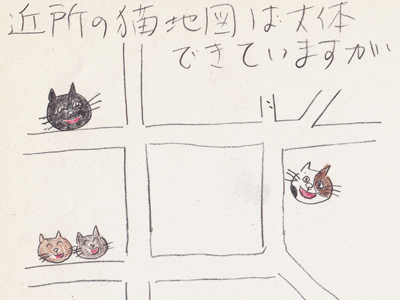 近所の猫地図は大体
できていますが